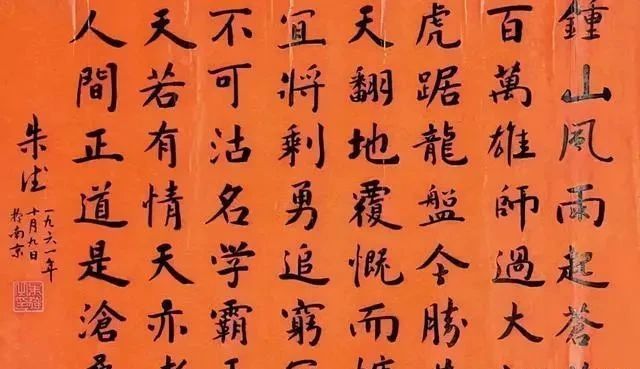 鍾山風雨起蒼
百萬雄師過大
虎踞龍盤今勝
天翻地覆慨而
宜將剩勇追窮
不可沽名学霸
天若有情天亦
人間正道是滄
朱德
一九六一年
十月九日
於南京